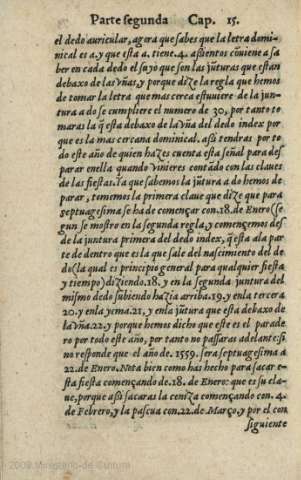 Parte segunda Cap. 15.
el dedo auricular, agora que sabes que la letra domi-
nical es a. y que esta a. tiene. 4. assientos cõuiene a sa
ber en cada dedo el suyo que son las jũturas que estan
debaxo de las vñas, y porque dize la regla que hemos
de tomar la letra que mas cerca estuuiere de la jun-
tura a do se cumpliere el numero de 30, por tanto to
maras la q̃ esta debaxo de la vña del dedo index por
que es la mas cercana dominical. assi tendras por to
do este año de quien hazes cuenta esta señal para des
parar en ella quando vinieres contãdo con las claues
de las fiestas. Ya que sabemos la jũtura a do hemos de
parar, tomemos la primera claue que dize que para
septuagesima se ha de començar con. 18. de Enero (se
gun se mostro en la segunda regla, y començemos des
de la juntura primera del dedo index, q̃ esta ala par
te de dentro que es la que sale del nascimiento del de
do (la qual es principio general para qualquier fiesta
y tiempo) diziendo. 18. y en la segunda juntura del
mismo dedo subiendo hazia arriba. 19. y en la tercera
20. y en la yema. 21, y en la jũtura que esta debaxo de
la vña. 22. y porque hemos dicho que este es el parade
ro por todo este año, por tanto no passaras adelante: si
no responde que el año de. 1559. sera septuagesima a
22. de Enero. Nota bien como has hecho para sacar e-
sta fiesta començando de. 18. de Enero: que es su cla-
ue, porque assi sacaras la ceniza començando con. 4.
de Febrero, y la pascua con. 22. de Março, y por el con
siguiente
Ministerio de Cultura